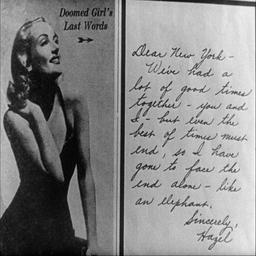 Doomed Girl's
Last Words
Dear New York -
We've had a
lot of good times
together - you and
I - but even the
best of times must
end, so I have
gone to face the
end alone - like
an elephant.
Sincerely,
Hazel